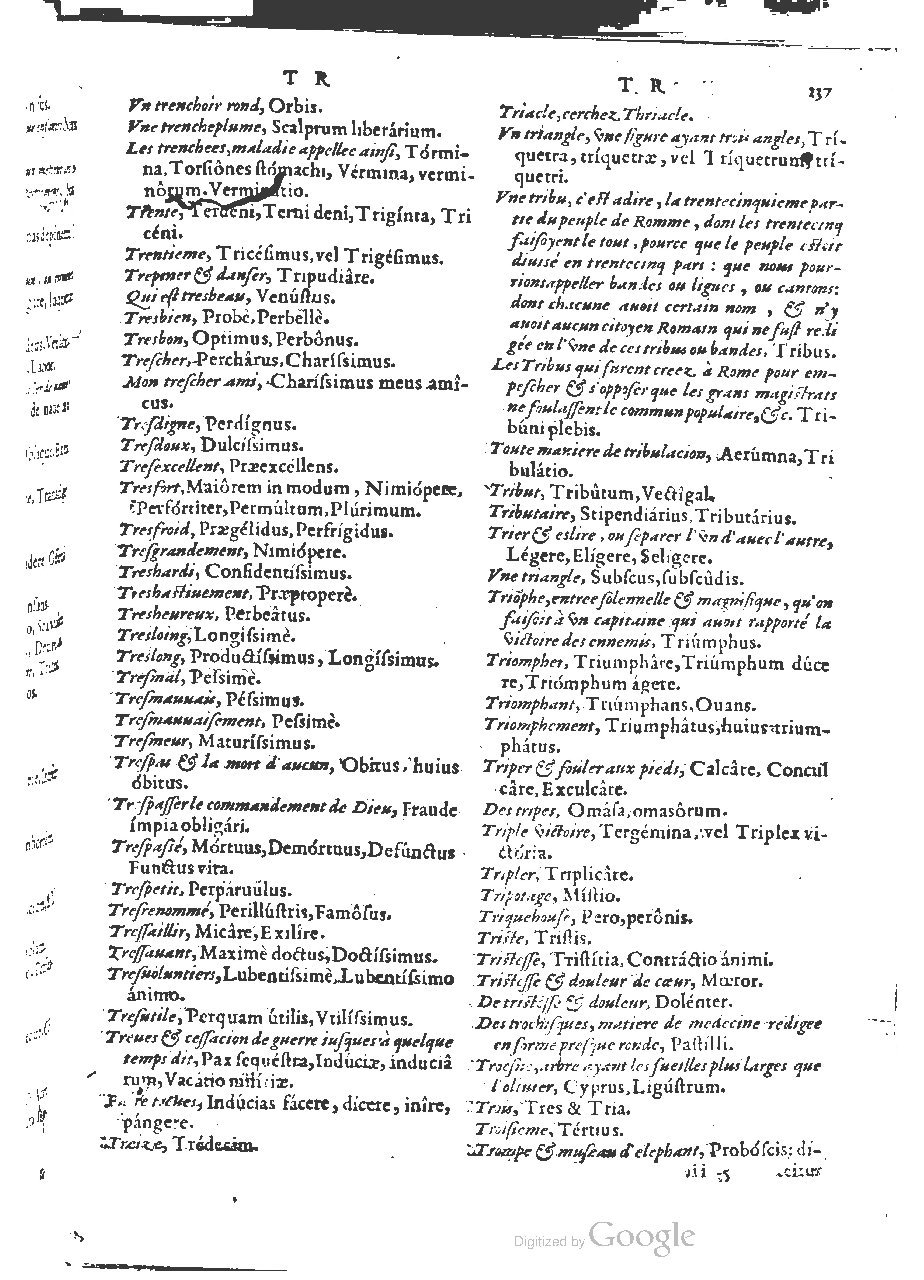 T R
Vn trenchoir rond, Orbis.
Vne trencheplume, Scalprum liberárium.
Les trenchees, maladie appellee ainsi, Tórmi-
na, Torsiônes stómachi, Vérmina, vermi-
nôrum. Verminatio.
Trente, Terdeni, Terni deni, Trigínta, Tri
céni.
Trentieme, Tricésimus, vel Trigésimus.
Trepiner & danser, Tripudiâre.
Qui est tresbeau, Venústus.
Tresbien, Probè, Perbéllè.
Tresbon, Optimus, Perbônus.
Trescher, Perchârus, Charíssimus.
Mon trescher ami, Charíssimus meus amî-
cus.
Tresdigne, Perdígnus.
Tresdoux, Dulcíssimus.
Tresexcellent, Præexcéllens.
Tresfort, Maiôrem in modum, Nimiópere,
Perfórtiter, Permúltum, Plúrimum.
Tresfroid, Prægélidus, Perfrígidus.
Tresgrandement, Nimiópere.
Treshardi, Confidentíssimus.
Treshastiuement, Præproperè.
Tresheureux, Perbeâtus.
Tresloing, Longíssimè.
Treslong, Productíssimus, Longíssimus.
Tresmal, Pessimè.
Tresmauuais, Péssimus.
Tresmauuaisement, Pessimè.
Tresmeur, Maturíssimus.
Trespas & la mort d'aucun, Obitus, huius
óbitus.
Trespasser le commandement de Dieu, Fraude
ímpia obligári.
Trespassé, Mórtuus, Demórtuus, Defúnctus
Functus vita.
Trespetit, Perpáruülus.
Tresrenommé, Perillústris, Famôsus.
Tressaillir, Micâre, Exilíre.
Tressauant, Maximè doctus, Doctíssimus.
Tresuoluntiers, Lubentíssimè, Lubentíssimo
ánimo.
Tresutile, Perquam útilis, Vtilíssimus.
Treues & cessacion de guerre iusques à quelque
temps dit, Pax sequéstra, Indúciæ, induciâ
rum, Vacátio milítiæ.
Faire treues, Indúcias fácere, dícere, inîre,
pángere.
Treize, Trédecim.
T. R
237
Triacle, cerchez Thriacle.
Vn triangle, vne figure ayant trois angles, Trí-
quetra, tríquetræ, vel Tríquetrum, trí-
quetri.
Vne tribu, c'est adire, la trentecinquieme par-
tie du peuple de Romme, dont les trentecinq
faisoyent le tout, pource que le peuple estoit
diuisé en trentecinq pars: que nous pour-
rions appeller bandes ou ligues, ou cantons:
dont chacune auoit certain nom, & n'y
auoit aucun citoyen Romain qui ne fust redi
gée en l'vne de ces tribus ou bandes, Tribus.
Les Tribus qui furent creez à Rome pour em-
pescher & s'opposer que les grans magistrats
ne foulassent le commun populaire, &c. Tri-
búni plebis.
Toute maniere de tribulacion, Aerúmna, Tri
bulátio.
Tribut, Tribûtum, Vectîgal.
Tributaire, Stipendiárius, Tributárius.
Trier & eslire, ou separer l'vn d'auec l'autre,
Légere, Elígere, Seligere.
Vne triangle, Subscus, subscûdis.
Triõphe, entree solennelle & magnifique, qu'on
faisoit à vn capitaine qui auoit rapporté la
victoire des ennemis, Triúmphus.
Triompher, Triumphâre, Triúmphum dúce
re, Triómphum ágere.
Triomphant, Triúmphans, Ouans.
Triomphement, Triumphâtus, huius trium-
phátus.
Triper & fouler aux pieds, Calcâre, Concul
câre, Exculcâre.
Des tripes, Omása, omasôrum.
Triple victoire, Tergémina, vel Triplex vi-
ctória.
Tripler, Triplicâre.
Tripotage, Místio.
Triquehouse, Pero, perônis.
Triste, Tristis.
Tristesse, Tristítia, Contráctio ánimi.
Tristesse & douleur de cœur, Mœror.
De tristesse & douleur, Dolénter.
Des trochisques, matiere de medecine redigee
en forme presque ronde, Pastilli.
Troesne, arbre ayant les fueilles plus larges que
l'oliuier, Cyprus, Ligústrum.
Trois, Tres & Tria.
Troisieme, Tértius.
Trompe & museau d'elephant, Probóscis: di-
Digitized by Google